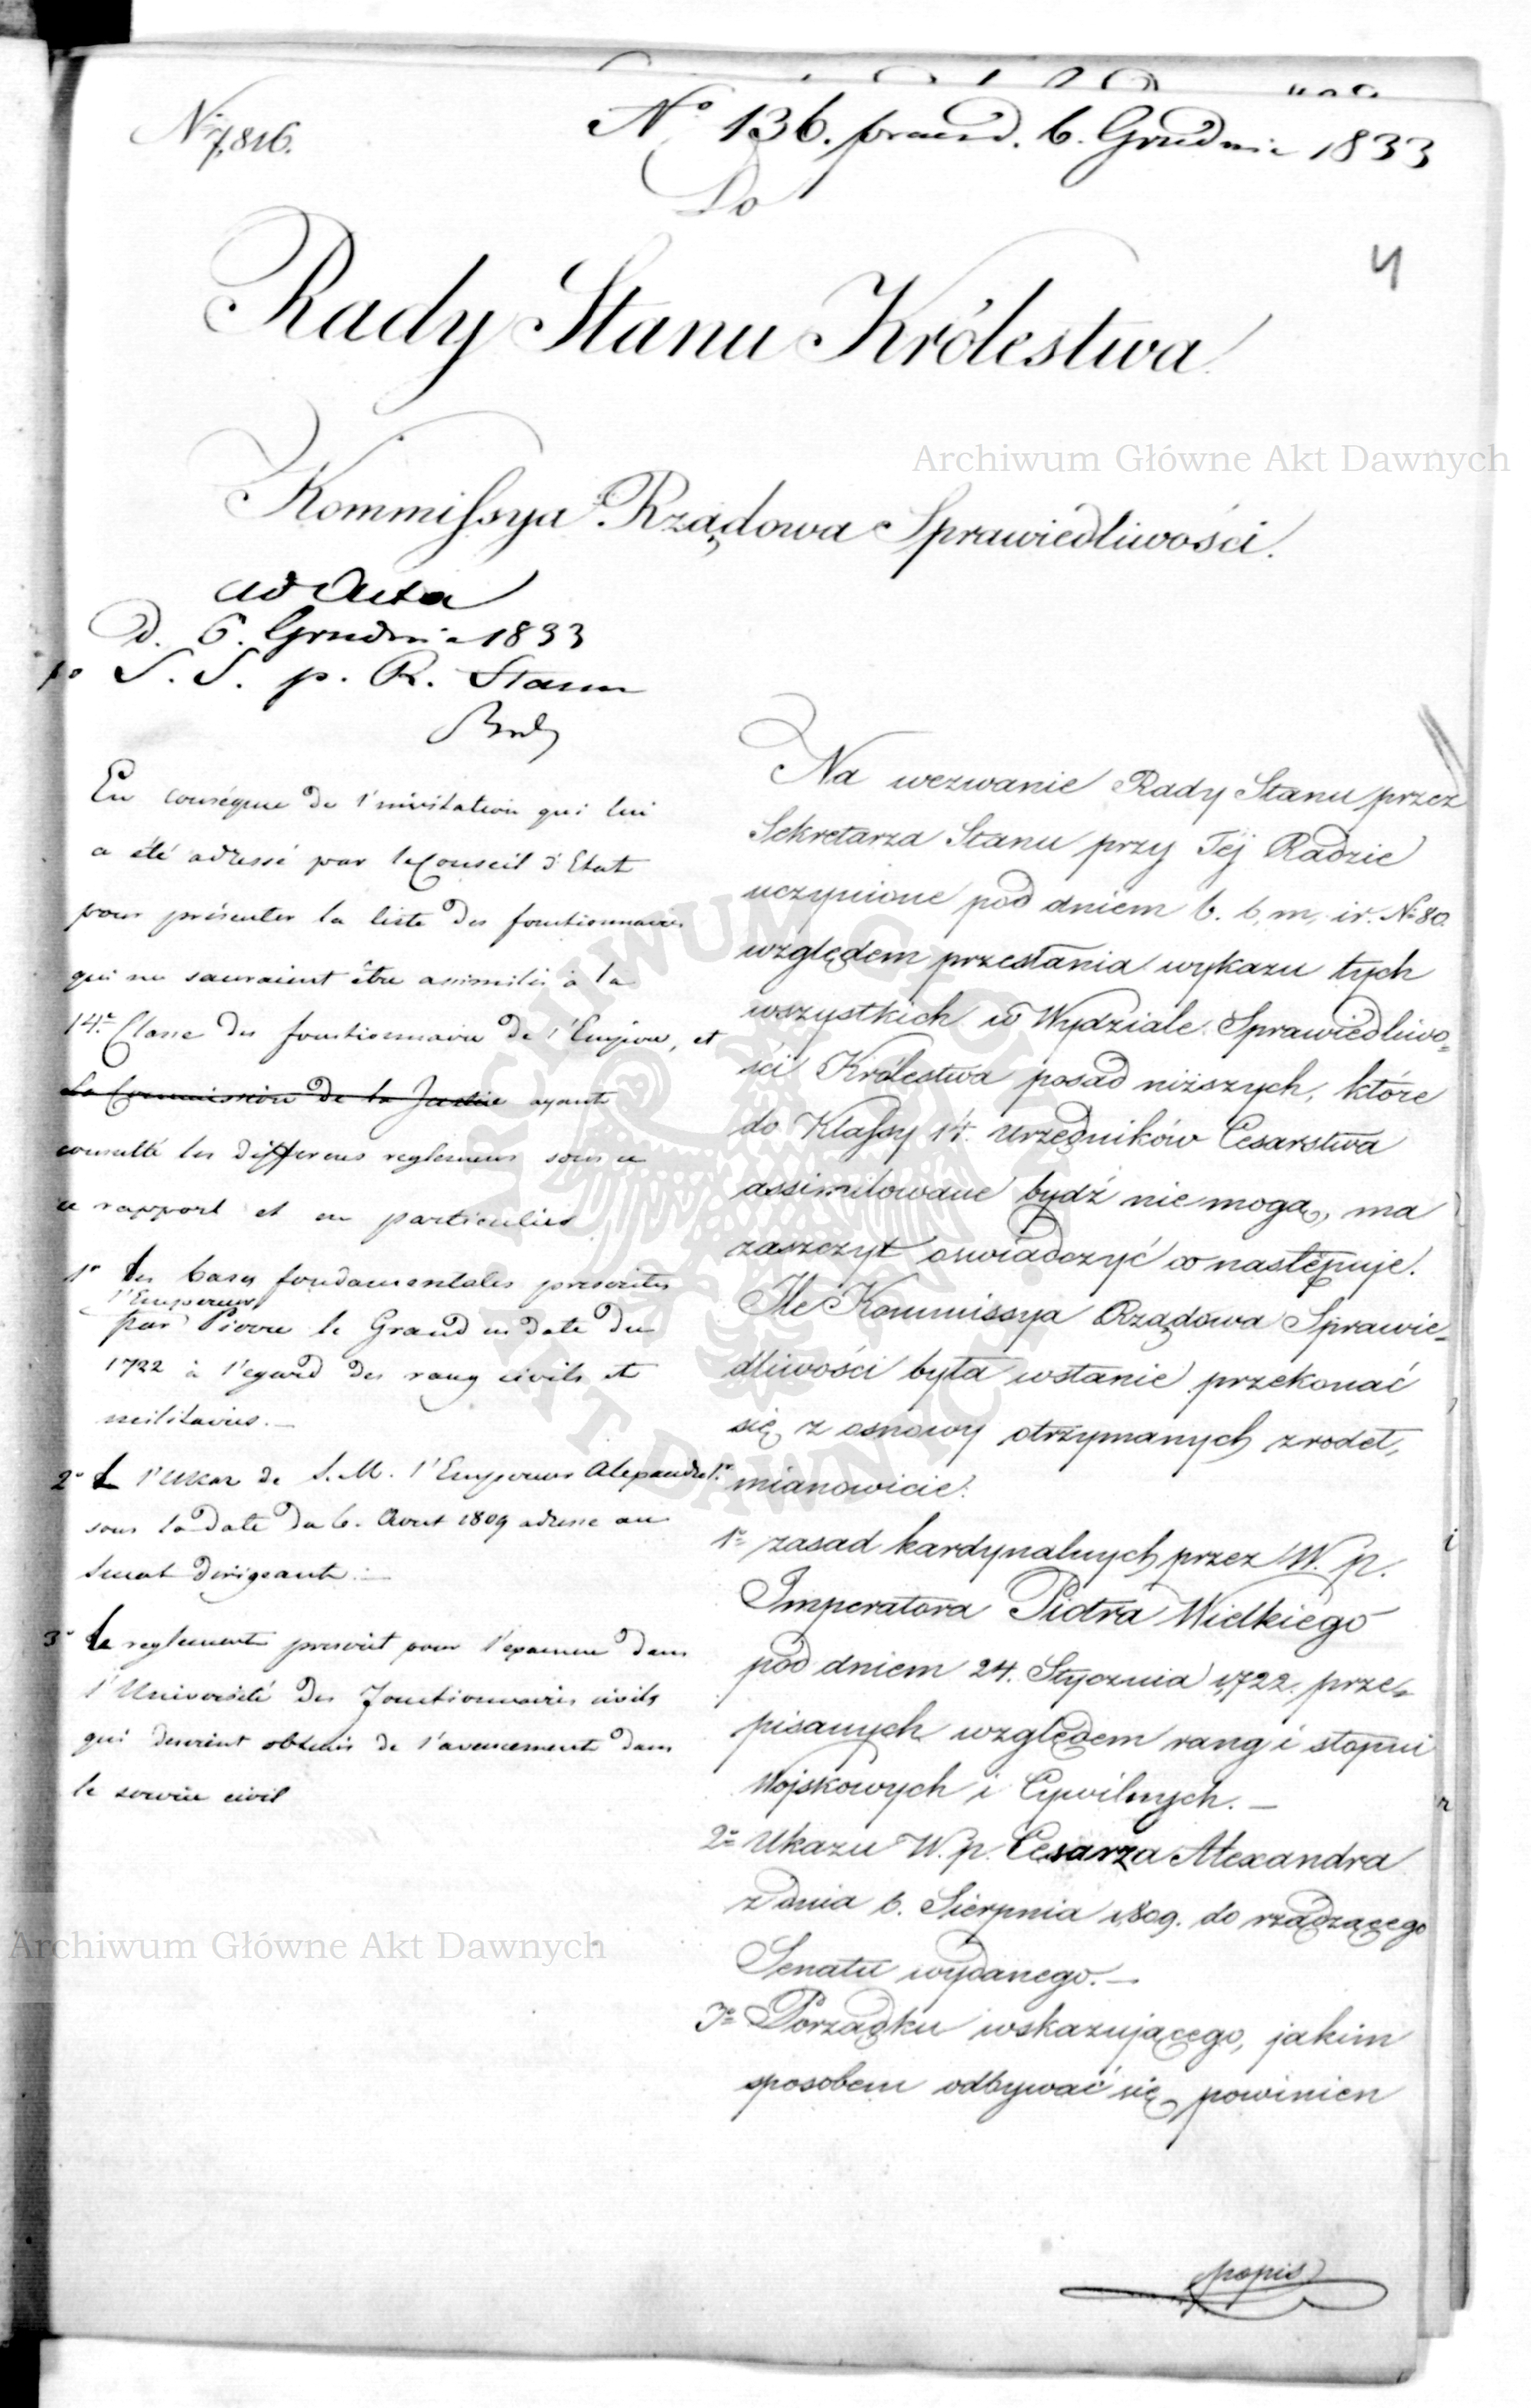 N 7,816.
Nº 136. praes. 6. Grudnia 1833
Do
4
Rady Stanu Królestwa
Kommissya Rządowa Sprawiedliwości.
Archiwum Główne Akt Dawnych
ad Acta
D. 6. Grudnia 1833
S. S. p. R. Stanu
En conséquence de l'invitation qui lui
a été adressé par le Conseil d'Etat
pour présenter la liste des fonctionnaires
qui ne sauraient être assimilés à la
14.e Classe des fonctionnaires de l'Empire, et
la Commission de la Justice ayant
consulté les differens reglemens sous ce
ce rapport et en particulier
1º les bases fondamentales prescrites
l'Empereur
par Pierre le Grand en date du
1722 à l'egard des rang civils et
militaires.—
2º L l'Ukaz de S. M. l'Empereur Alexandre 1.r
sous la date du 6. Aout 1809 adressé au
Senat dirigeant.—
3º Le reglement prescrit pour l'examen dans
l'Université des fonctionnaires civils
qui desirent obtenir de l'avancement dans
le service civil
Na wezwanie Rady Stanu przez
Sekretarza Stanu przy Téj Radzie
uczynione pod dniem 6. b. m. i r. Nº 80.
względem przesłania wykazu tych
wszystkich w Wydziale Sprawiedliwo=
ści Królestwa posad niższych, które
do Klassy 14. urzędników Cesarstwa
assimilowane bydź nie mogą, ma
zaszczyt oświadczyć co następuje.
Ile Kommissya Rządowa Sprawie=
dliwości była wstanie przekonać
się z osnowy otrzymanych zrodeł,
mianowicie:
1º zasad kardynalnych przez W. p.
Imperatora Piotra Wielkiego
pod dniem 24. Stycznia 1722. prze=
pisanych względem rang i stopni
Wojskowych i Cywilnych.—
2º Ukazu W. p. Cesarza Alexandra
z dnia 6. Sierpnia 1809. do rządzącego
Senatu wydanego.—
3º Porządku wskazującego, jakim
sposobem odbywać się powinien
popis
Archiwum Główne Akt Dawnych
ARCHIWUM GŁÓWNE AKT DAWNYCH